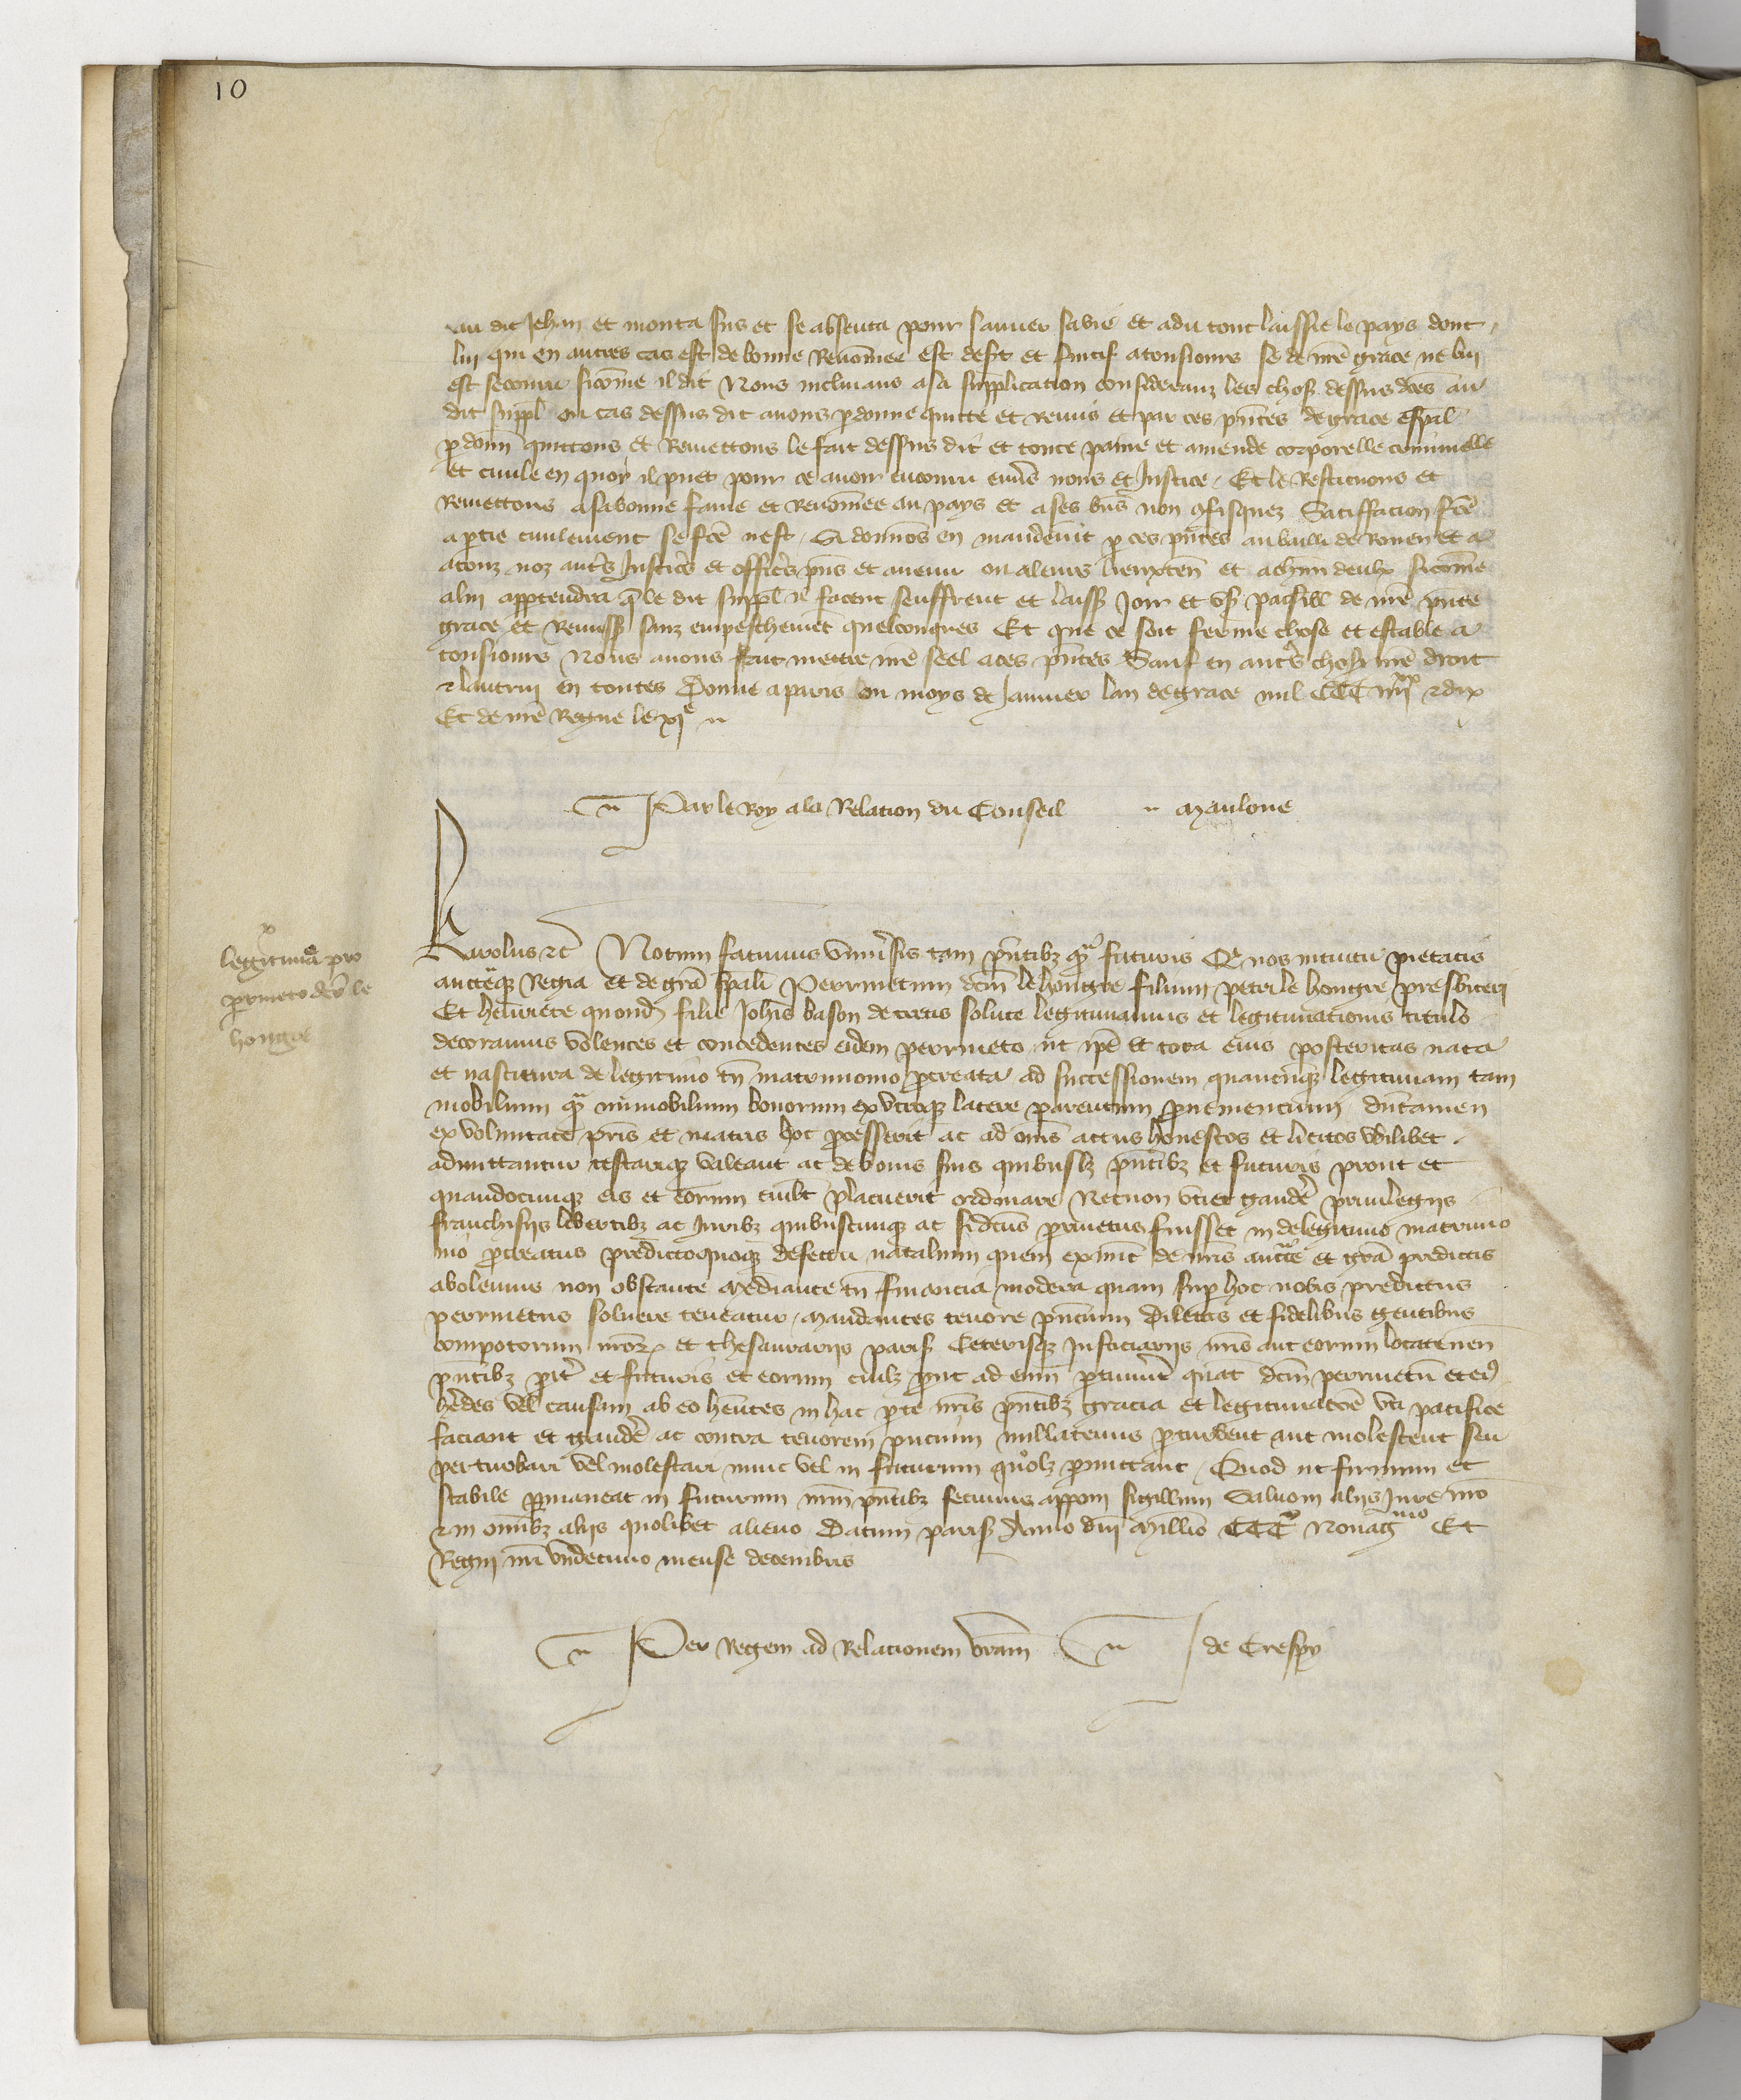 10
au dit Jehan et monta sus et se absenta pour sauver sa vie et a du tout laissie le pays dont
lui qui en autres cas est de bonne Renōmee est desert et fuitif a tousiours se de nr̄e grace ne lui
est secouru sicōme il dit Nous inclinans a sa supplication considerans les choses dessus dc̄es au
dit suppl̄ ou cas dessus dit avons ꝑdonne quitte et Remis et par ces pn̄tes de grace esp̄al
ꝑdonn̄ quittons et Remettons le fait dessus dit et toute paine et amende corporelle criminelle
et civile en quoy il puet pour ce avoir encouru envs̄ nous et Justice Et le Restituons et
Remettons a sa bonne fame et Renōmee au pays et a ses bn̄s non ꝯfisquez Satiffacion fc̄e
a ꝑtie civilement se fc̄e nest Si donnōs en mandemt̄ ꝑ ces pn̄tes au bailli de Rouen et a
a touz noz autr̄s Justic̄rs et offic̄rs pn̄s et avenir ou a leurs lieuxten̄ et a ch̄un deulx sicōme
a lui appartendra q̄ le dit suppl̄ facent seuffrent et laiss̄ Joir et us̄ paisibl̄ de nr̄e pn̄te
grace et Remiss̄ sanz empeschemēt quelconques Et que ce soit ferme chose et estable a
tousiours Nous avons fait mettre nr̄e seel a ces pn̄tes Sauf en autr̄s choses nr̄e droit
⁊ lautrui en toutes Donne a paris ou moys de Janvier lan de grace mil CCC iiiixx ⁊ dix
Et de nr̄e Regne le xie
Par le Roy a la Relacion du Conseil Maulone
legitimā pro
perrineto dc̄o le
hongre
Karolus ⁊c̄ Notum facimus univ̄sis tam pn̄tibꝫ qͣ futuris Qͩ nos intuitu pietatis
auctēqꝫ Regia et de grā sp̄ali Perrinetum dc̄m le hongre filium petri le hongre presbiteri
Et henriete quond̄ filie Joh̄is bason de certis solute legitimamus et legitimationis titulo
decoramus Volentes et concedentes eidem perrineto ut ip̄e et tota eius posteritas nata
et nascitura de legitimo tn̄ matrimonio ꝓcreata ad successionem quamcūqꝫ legitimam tam
mobilium qͣ immobilium bonorum ex utroqꝫ latere parentum provenientium dūtamen
ex voluntate pr̄is et matris hoc ꝓcesserit ac ad om̄s actus honestos et licitos vbilibet
admittantur testariqꝫ valeant ac de bonis suis quibuslꝫ pn̄tibꝫ et futuris prout et
quandocunqꝫ eis et eorum cuilibꝫ placuerit ordinare Necnon uti et gaudēr privilegiis
franchisiis libertatibꝫ ac Juribꝫ quibuscunqꝫ ac si dc̄us perrinetus fuisset in de legitimo matrimo
nio ꝓcreatus predictoqueqꝫ defectu natalium quem ex nūc de nr̄is auctᵗᵉ et grā predictis
abolemus non obstante Mediante tn̄ financia moderata quam suꝑ hoc nobis predictus
perrinetus solvere teneatur Mandantes tenore pn̄cium Dilectis et fidelibus gentibus
compotorum nr̄oꝝ et thesaurariis paris̄ Ceterisqꝫ Justiciariis nr̄is aut eorum locateneñ
pn̄tibꝫ pit̄r et futuris et eorum cuilꝫ ꝓut ad eum ꝑtinuer̄it quat̄ dc̄m perrinetū et ei9
h̄edes vel causam ab eo hēntes in hac ꝑte nr̄is pn̄tibꝫ gracia et legitimatōne uti pacifice
faciant et gaudēr ac contra tenorem pn̄cium nullatenus ꝑturbent aut molestent seu
perturbari vel molestari nunc vel in futurum quolꝫ ꝑmittant Quod ut firmum et
stabile ꝑmaneat in futurum nr̄m pn̄tibꝫ fecimus apponi sigillum Salvo in aliis Jure nr̄o
⁊ in om̄ibꝫ aliis quolibet alieno Datum paris̄ Anno dn̄i Mill̄io CCCᵒ Nonag mo Et
Regni nr̄i undecimo mense decembris
Per Regem ad Relacionem vr̄am J de Crespy